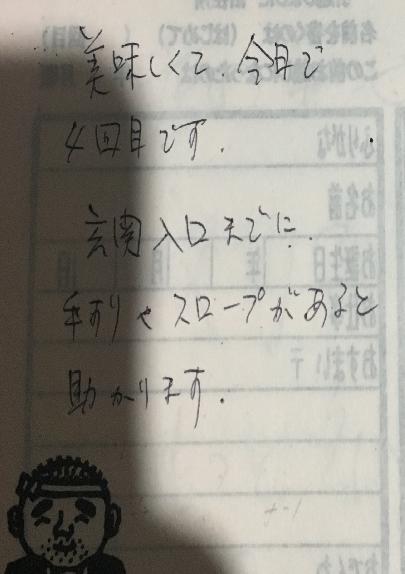 美味しくて、今日で
4回目です.
玄関入口までに、
手すりやスロープがあると
助かります.